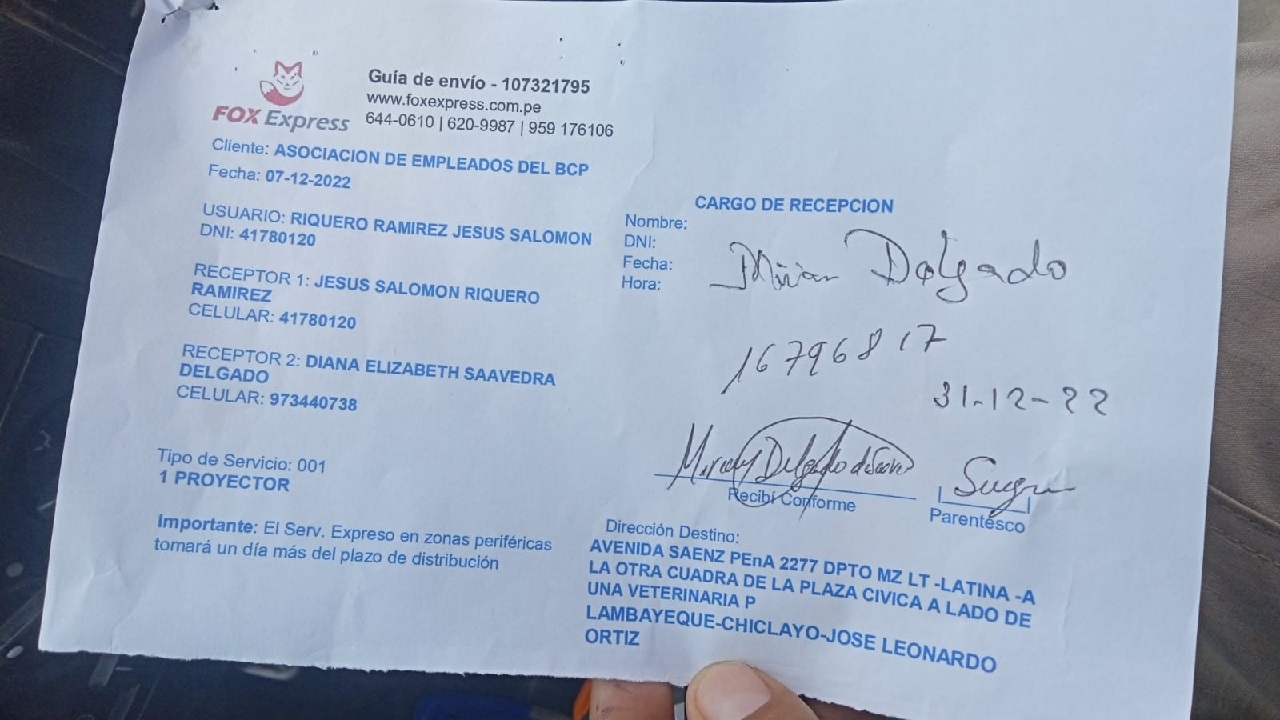 FOX Express
Guía de envío - 107321795
www.foxexpress.com.pe
644-0610 | 620-9987 | 959 176106
Cliente: ASOCIACION DE EMPLEADOS DEL BCP
Fecha: 07-12-2022
USUARIO: RIQUERO RAMIREZ JESUS SALOMON
DNI: 41780120
RECEPTOR 1: JESUS SALOMON RIQUERO
RAMIREZ
CELULAR: 41780120
RECEPTOR 2: DIANA ELIZABETH SAAVEDRA
DELGADO
CELULAR: 973440738
Tipo de Servicio: 001
1 PROYECTOR
Importante: El Serv. Expreso en zonas periféricas
tomará un día más del plazo de distribución
CARGO DE RECEPCION
Nombre:
DNI:
Fecha:
Hora:
Mirian Delgado
16796817
31-12-22
Delgado
Recibí Conforme
Parentesco
Dirección Destino:
AVENIDA SAENZ PEnA 2277 DPTO MZ LT -LATINA -A
LA OTRA CUADRA DE LA PLAZA CIVICA A LADO DE
UNA VETERINARIA P
LAMBAYEQUE-CHICLAYO-JOSE LEONARDO
ORTIZ